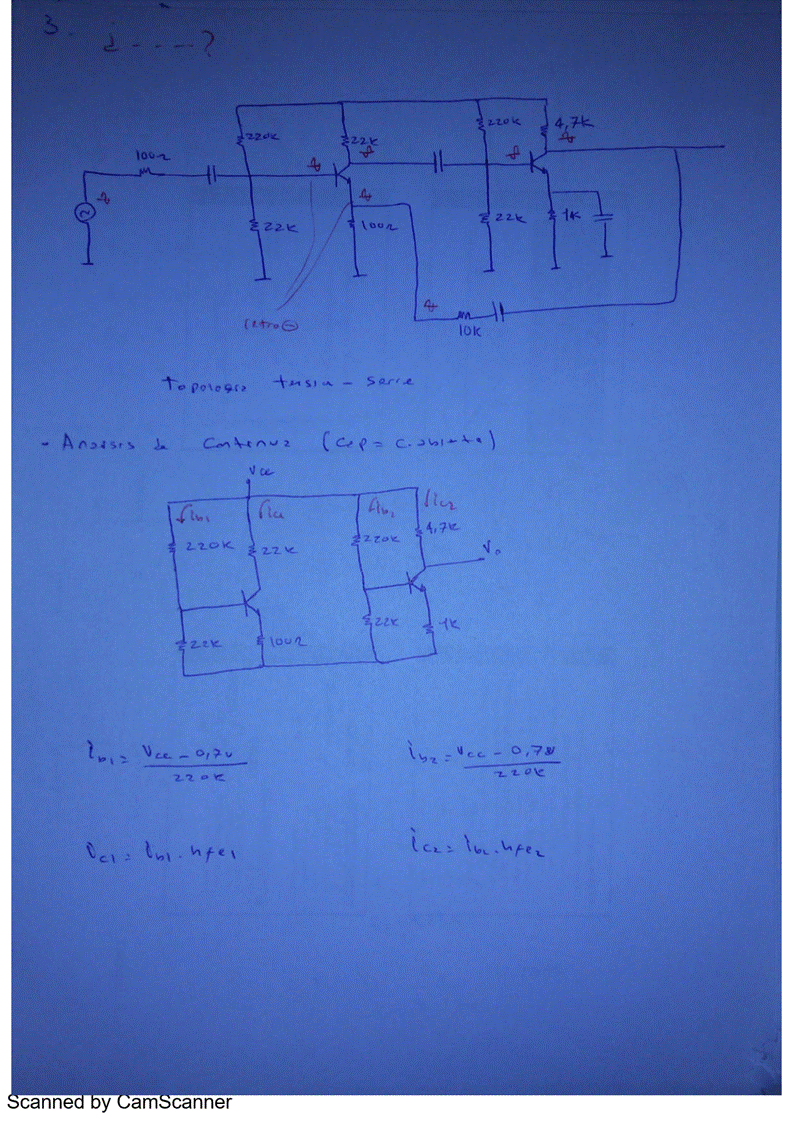 3.
¿ - - - - ?
220K
22K
220K
4,7K
100Ω
22K
100Ω
22K
1K
retro ⊖
10K
Topología tensión - serie
- Análisis de continua (Cap = c. abierto)
Vcc
ib1
ic1
ib2
ic2
220K
22K
220K
4,7K
Vo
22K
100Ω
22K
1K
ib1 = Vcc - 0,7v / 220K
ib2 = Vcc - 0,7v / 220K
ic1 = ib1 . hfe1
ic2 = ib2 . hfe2
Scanned by CamScanner